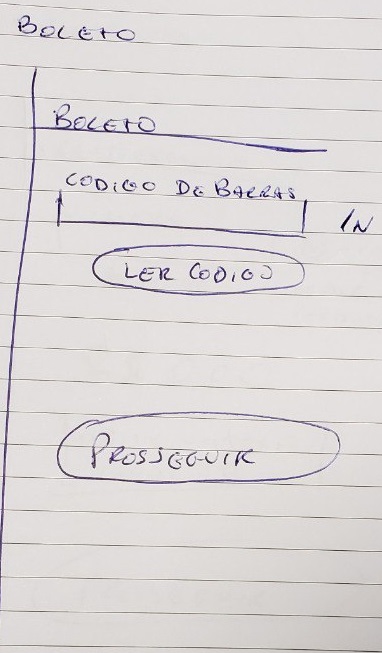 BOLETO
BOLETO
CODIGO DE BARRAS
IN
LER CODIGO
PROSSEGUIR